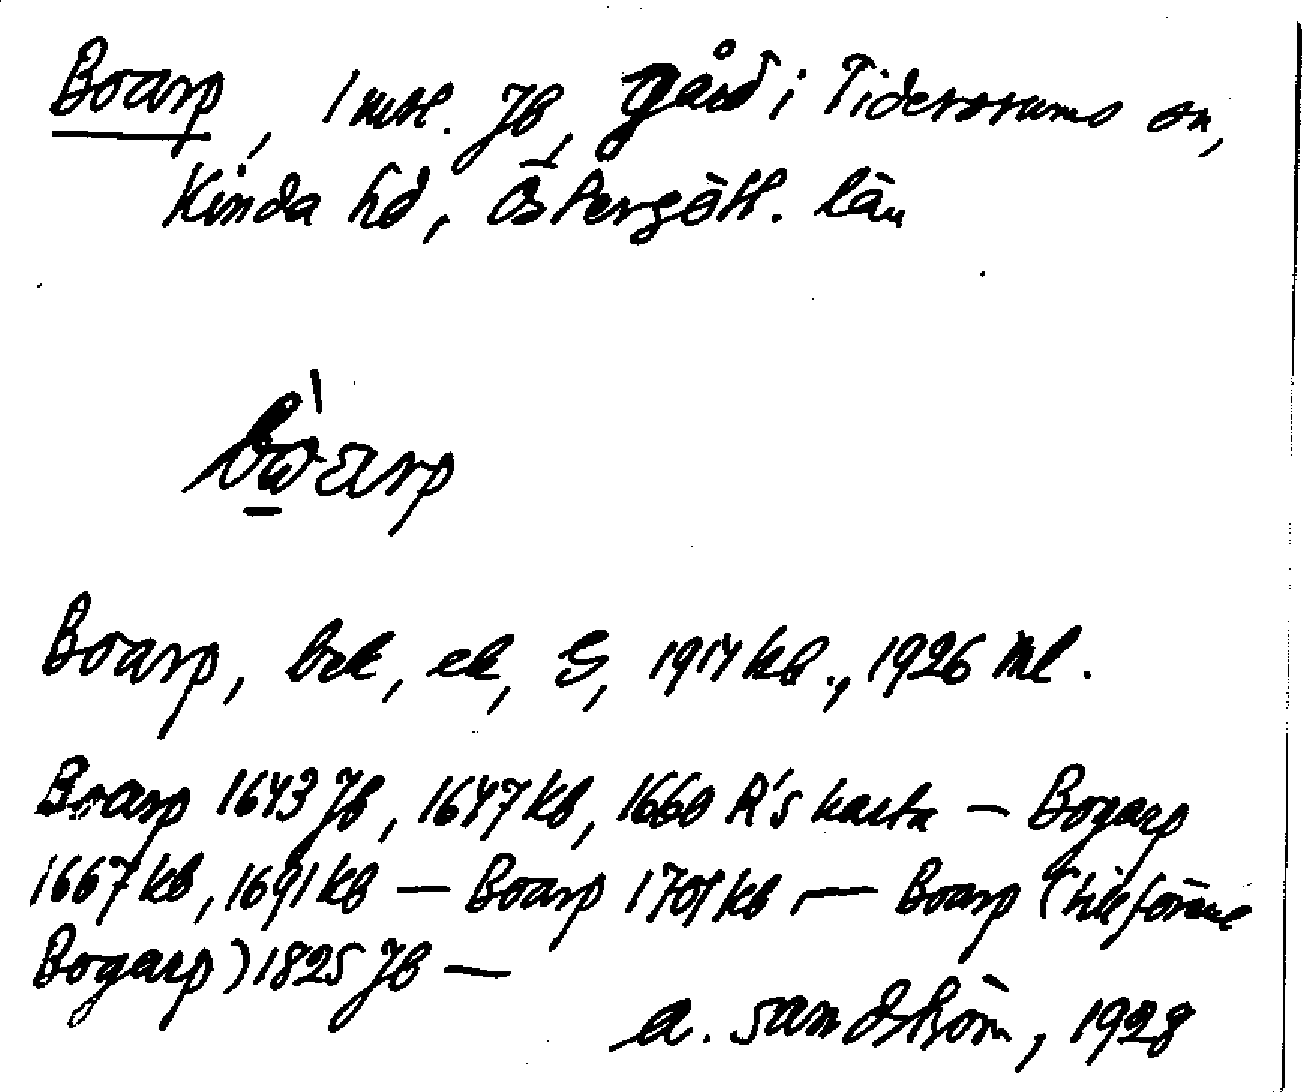 Boarp, 1 mtl. Jb, gård i Tidersrums sn,
Kinda hd, Östergötl. län
bὼarp
Boarp, bek, ek, G, 1917 kb., 1926 ml.
Boarp 1643 Jb, 1647 kb, 1660 R's karta — Bogarp
1667 kb, 1691 kb — Boarp 1701 kb — Boarp (tillförene
Bogarp) 1825 Jb —
A. Sandström, 1928